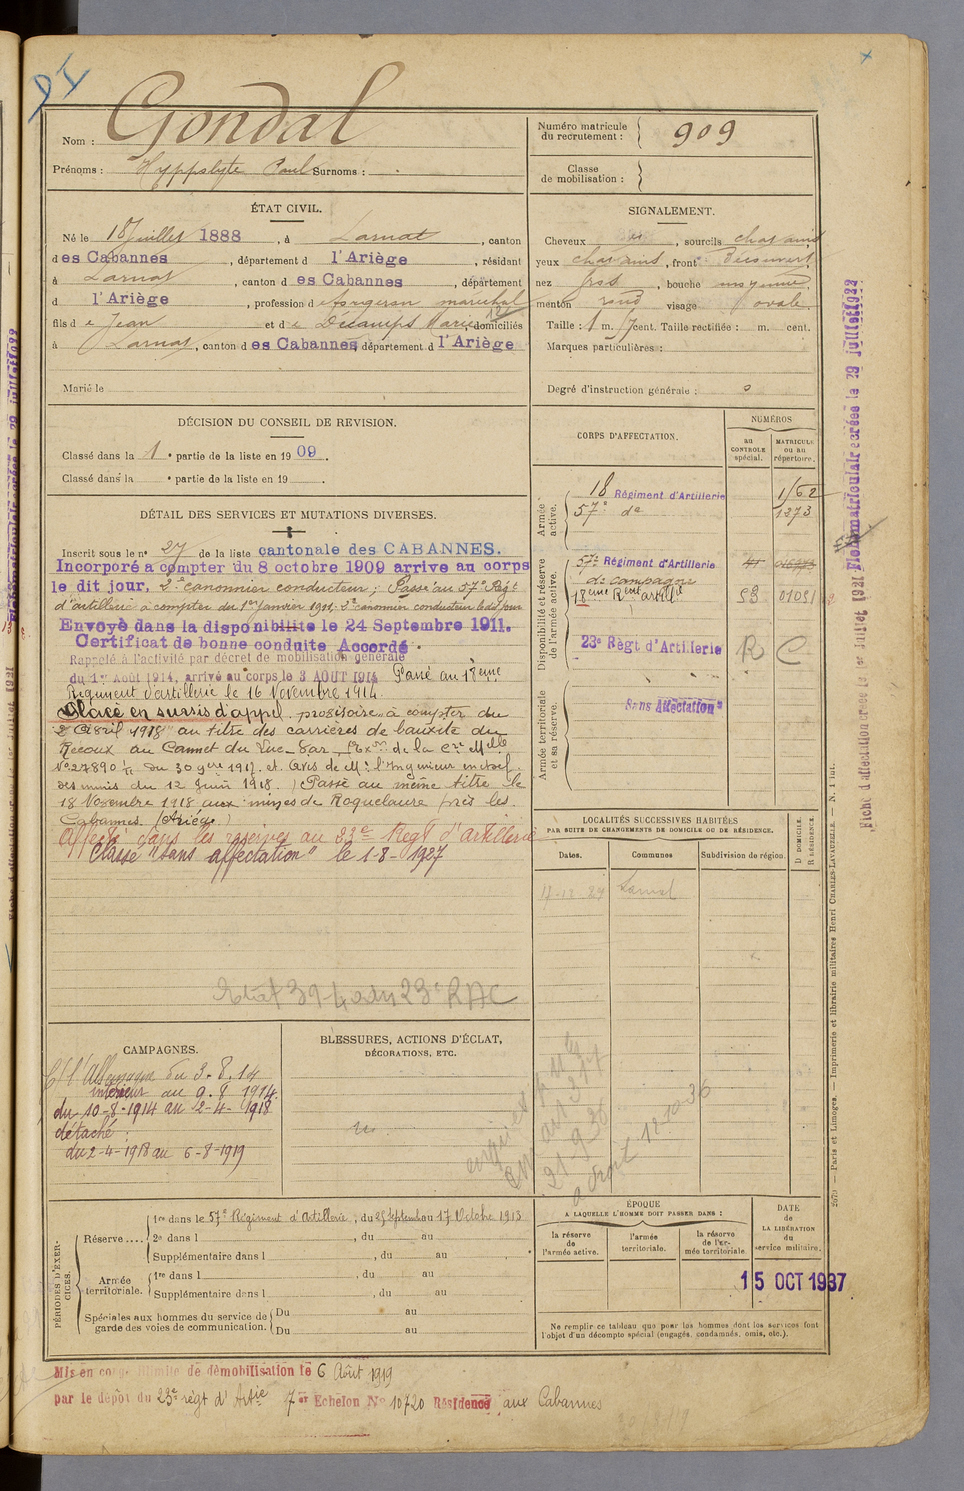 Gondal
Nom :
Prénoms : Hyppolyte Paul Surnoms :
Numéro matricule
du recrutement : 909
Classe
de mobilisation :
ÉTAT CIVIL.
Né le 18 Juillet 1888, à Larnat, canton
d es Cabannes, département d l'Ariège, résidant
à Larnat, canton d es Cabannes, département
d l'Ariège, profession d forgeron maréchal
fils d e Jean et d e Décamps Marie, domiciliés
à Larnat, canton d es Cabannes, département d l'Ariège
Marié le
SIGNALEMENT.
Cheveux, sourcils chatains
yeux chatains, front découvert
nez, bouche moyenne,
menton rond visage ovale.
Taille : 1 m. cent. Taille rectifiée : m. cent.
Marques particulières :
Degré d'instruction générale :
DÉCISION DU CONSEIL DE REVISION.
Classé dans la 1e partie de la liste en 1909.
Classé dans la e partie de la liste en 19 .
CORPS D'AFFECTATION.
NUMÉROS
au
CONTROLE
spécial.
MATRICULE
ou au
répertoire.
Armée
active.
18 Régiment d'Artillerie 1/62
57e do 1273
Disponibilité et réserve
de l'armée active.
57e Régiment d'Artillerie
de campagne
18eme Rent artie
23e Règt d'Artillerie R C
Armée territoriale
et sa réserve.
Sans Affectation
DÉTAIL DES SERVICES ET MUTATIONS DIVERSES.
Inscrit sous le no 27 de la liste cantonale des CABANNES.
Incorporé à compter du 8 octobre 1909 arrive au corps
le dit jour, 2e canonnier conducteur ; Passé au 57e Régt
d'artillerie à compter du 1er Janvier 1911, 2e canonnier conducteur le dit jour
Envoyé dans la disponibilite le 24 Septembre 1911.
Certificat de bonne conduite Accordé
Rappelé à l'activité par décret de mobilisation générale
du 1er Août 1914, arrivé au corps le 3 AOUT 1914 Passé au 18eme
Régiment d'artillerie le 16 Novembre 1914.
Placé en sursis d'appel provisoire à compter du
2 Avril 1918 au titre des carrières de bauxite du
Recoux au Cannet du Luc - Var
du 30 9bre 1917. et Avis de Mr l'Ingénieur en chef
des mines du 12 Juin 1918. Passé au même titre le
18 Novembre 1918 aux mines de Roquelaure près les
Cabannes (Ariège)
Affecté dans les réserves au 23e Régt d'Artillerie
Classé "sans affectation" le 1-8-1927
LOCALITÉS SUCCESSIVES HABITÉES
PAR SUITE DE CHANGEMENTS DE DOMICILE OU DE RÉSIDENCE.
Dates.
Communes
Subdivision de région.
D DOMICILE.
R RÉSIDENCE.
Larnat
23e RAC
CAMPAGNES.
C/ l'Allemagne du 3.8.14
intérieur au 9.8 1914
du 10-8-1914 au 2-4-1918
détaché :
du 2-4-1918 au 6-8-1919
BLESSURES, ACTIONS D'ÉCLAT,
DÉCORATIONS, ETC.
PÉRIODES D'EXERCICES.
Réserve....
1re dans le 57e Régiment d'Artillerie, du 25 Septembre au 17 Octobre 1913
2e dans l , du au
Supplémentaire dans l , du au
Armée
territoriale.
1re dans l , du au
Supplémentaire dans l , du au
Spéciales aux hommes du service de
garde des voies de communication.
Du au
Du au
ÉPOQUE
A LAQUELLE L'HOMME DOIT PASSER DANS :
la réserve
de
l'armée active.
l'armée
territoriale.
la réserve
de l'armée territoriale
DATE
de
LA LIBÉRATION
du
service militaire.
15 OCT 1937
Ne remplir ce tableau que pour les hommes dont les services font
l'objet d'un décompte spécial (engagés, condamnés, omis, etc.).
Mis en congé illimité de démobilisation le 6 Août 1919
par le dépôt du 23e régt d'Artie 7er Echelon No 10720 Résidence aux Cabannes
2670 — Paris et Limoges. — Imprimerie et librairie militaires Henri CHARLES-LAVAUZELLE. — N. 1 int.